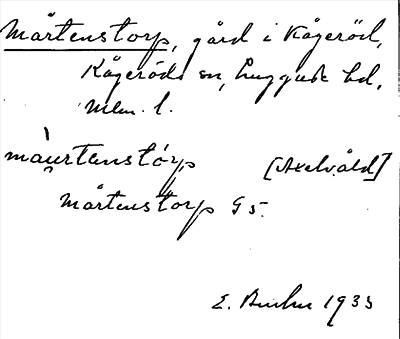 Mårtenstorp, gård i Kågeröd,
Kågeröds sn, Luggude hd,
Mlm. l.
màurtenstórp [Axelvåld]
Mårtenstorp G5.
E. 1935